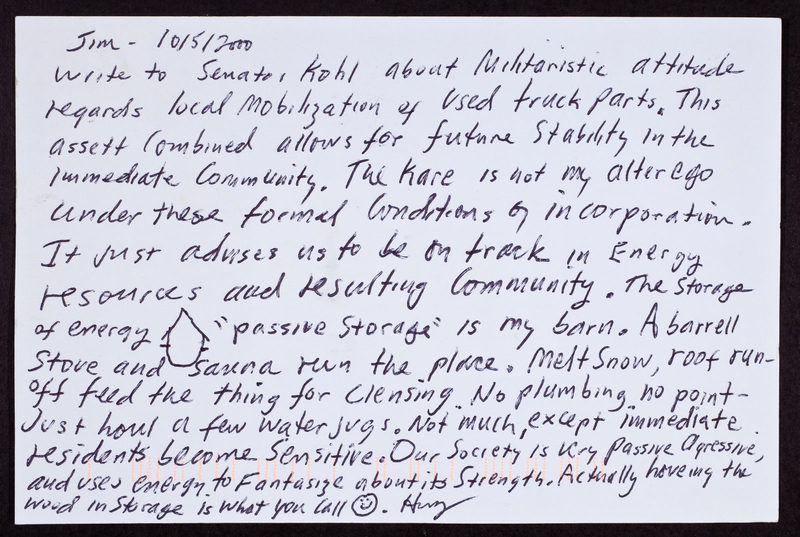 Jim - 10/5/2000
Write to Senator Kohl about Militaristic attitude
regards local Mobilization of Used truck parts. This
assett Combined allows for future Stability in the
immediate Community. The Kare is not my alter ego
Under these formal Conditions of incorporation.
It just advises us to be on track in Energy
resources and resulting Community. The Storage
of energy "passive Storage" is my barn. A barrell
Stove and Sauna run the place. Melt Snow, roof run-
off feed the thing for Clensing. No plumbing no point-
Just houl a few water jugs. Not much, except immediate
residents become Sensitive. Our Society is very Passive Agressive,
and uses energy to Fantasize about its Strength. Actually hoveing the
wood in Storage is what you Call ☺.